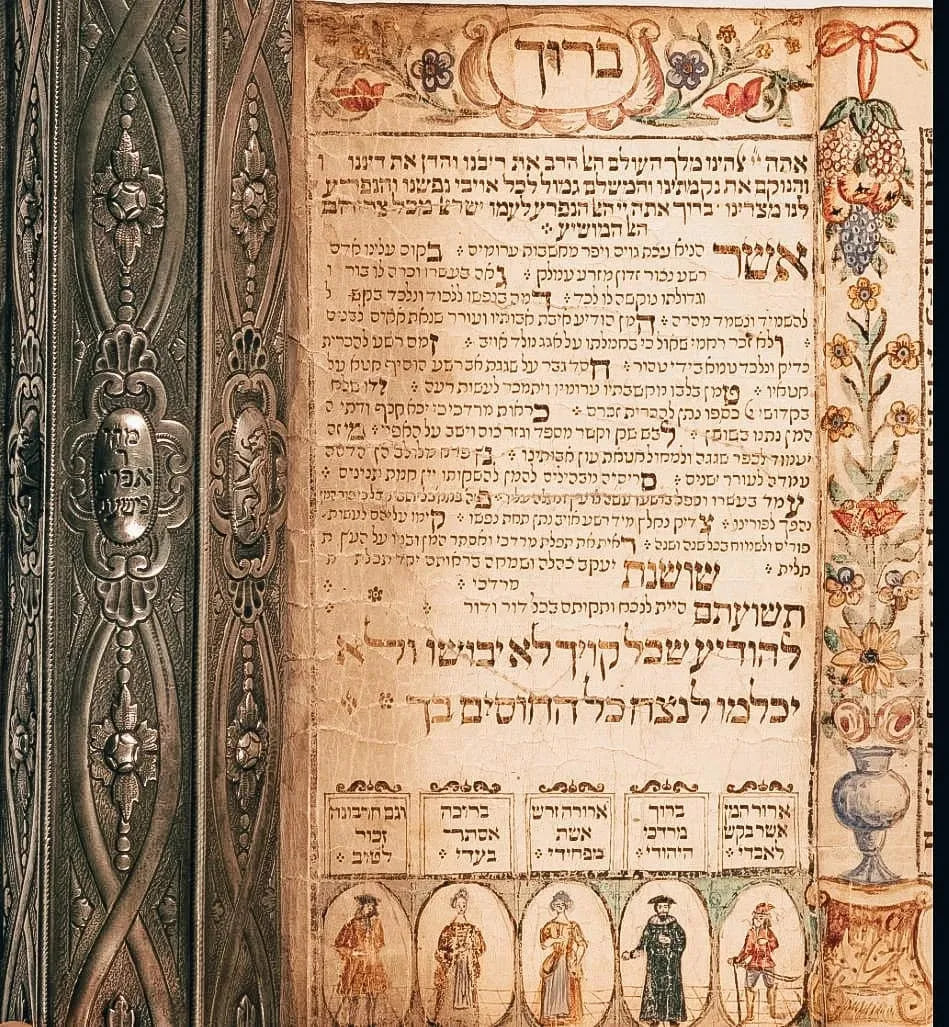 ברוך
אתה יי אלהינו מלך העולם האל הרב את ריבנו והדן את דיננו ו
והנוקם את נקמתינו והמשלם גמול לכל אויבי נפשנו והנפרע
לנו מצרינו ברוך אתה יי האל הנפרע לעמו ישראל מכל צריהם
האל המושיע
אשר הניא עצת גוים ויפר מחשבות ערומים בקום עלינו אדם
רשע נצר זדון מזרע עמלק גאה בעשרו וכרה לו בור
וגדולתו יקשה לו לכד דמה בנפשו ללכוד ונלכד בקש ל
להשמיד ונשמד מהרה המן הודיע איבת אבותיו ועורר שנאת אחים לבנים
ולא זכר רחמי שאול כי בחמלתו על אגג נולד אויב זמם רשע להכרית
צדיק ונלכד טמא בידי טהור חסד גבר על שגגת אב רשע הוסיף חטא על
חטאיו טמן בלבו מחשבותיו ערומיו ויתמכר לעשות רעה ידו שלח
בקדושי כספו נתן להכרית זכרם כראות מרדכי כי יצא קצף ודתי
המן נתנו בשושן לבש שק וקשר מספד וגזר צום וישב על האפר מי זה
יעמוד לכפר שגגה ולמחול חטאת עון אבותינו נץ פרח מלולב הן הדסה
עמדה לעורר ישנים סריסיה מבהילים להמן להשקותו יין חמת תנינים
עמד בעשרו ונפל ברשעו עשה לו עץ ונתלה עליו
נהפך לפורינו צדיק נחלץ מיד רשע אויב נתן תחת נפשו קימו עליהם לעשות
פורים ולשמוח בכל שנה ושנה ראית את תפלת מרדכי ואסתר המן ובניו על העץ ת
תלית שושנת יעקב צהלה ושמחה בראותם יחד תכלת
מרדכי
תשועתם היית לנצח ותקותם בכל דור ודור
להודיע שכל קויך לא יבושו ולא
יכלמו לנצח כל החוסים בך
ארור המן
אשר בקש
לאבדי
ברוך
מרדכי
היהודי
ארורה זרש
אשת
מפחידי
ברוכה
אסתר
בעדי
וגם חרבונה
זכור
לטוב